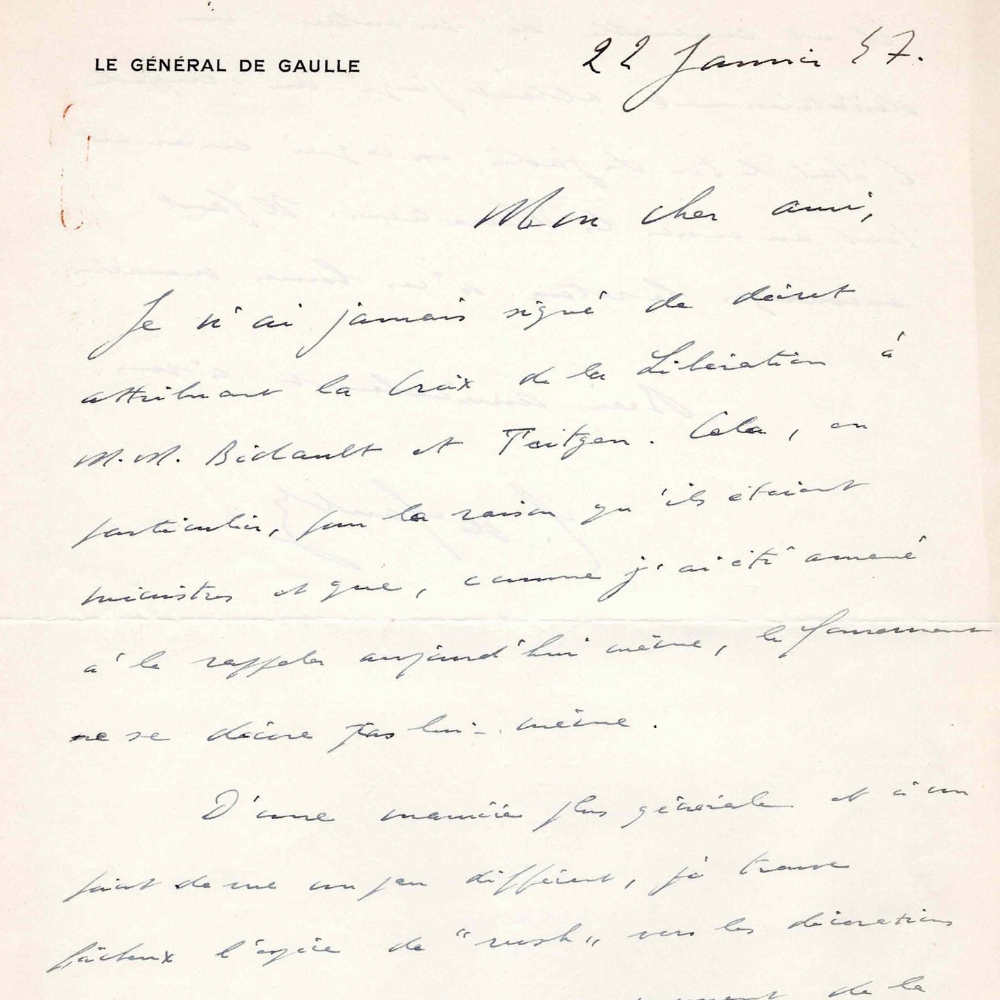 LE GÉNÉRAL DE GAULLE
22 Janvier 47.
Mon cher ami,
Je n'ai jamais signé de décret
attribuant la Croix de la Libération à
M.M. Bidault et Teitgen. Cela, en
particulier, pour la raison qu'ils étaient
ministres et que, comme j'ai été amené
à le rappeler aujourd'hui même, le Gouvernement
ne se décore pas lui-même.
D'une manière plus générale et à un
point de vue un peu différent, je trouve
fâcheux l'espèce de "rush" vers les décorations
de la